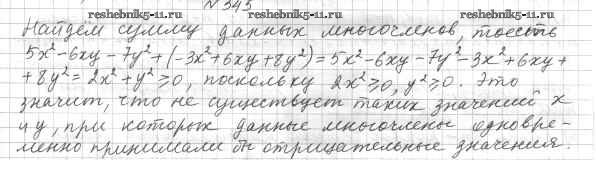 № 345
www.reshebnik5-11.ru www.reshebnik5-11.ru
Найдём сумму данных многочленов, тоесть
5x²-6xy-7y²+(-3x²+6xy+8y²)=5x²-6xy-7y²-3x²+6xy+
+8y²=2x²+y²⩾0, поскольку 2x²⩾0, y²⩾0. Это
значит, что не существует таких значений x
и y, при которых данные многочлены одновре-
менно принимали бы отрицательные значения.
www.reshebnik5-11.ru www.reshebnik5-11.ru